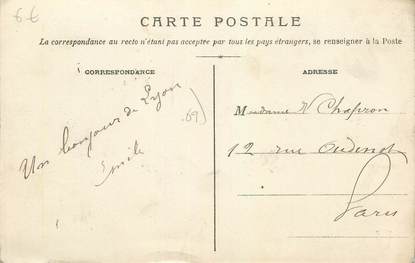 6€
CARTE POSTALE
La correspondance au recto n'étant pas acceptée par tous les pays étrangers, se renseigner à la Poste
CORRESPONDANCE
Un bonjour de Lyon
(69)
Emile
ADRESSE
Madame Chapron
12 rue Oudinot
Paris